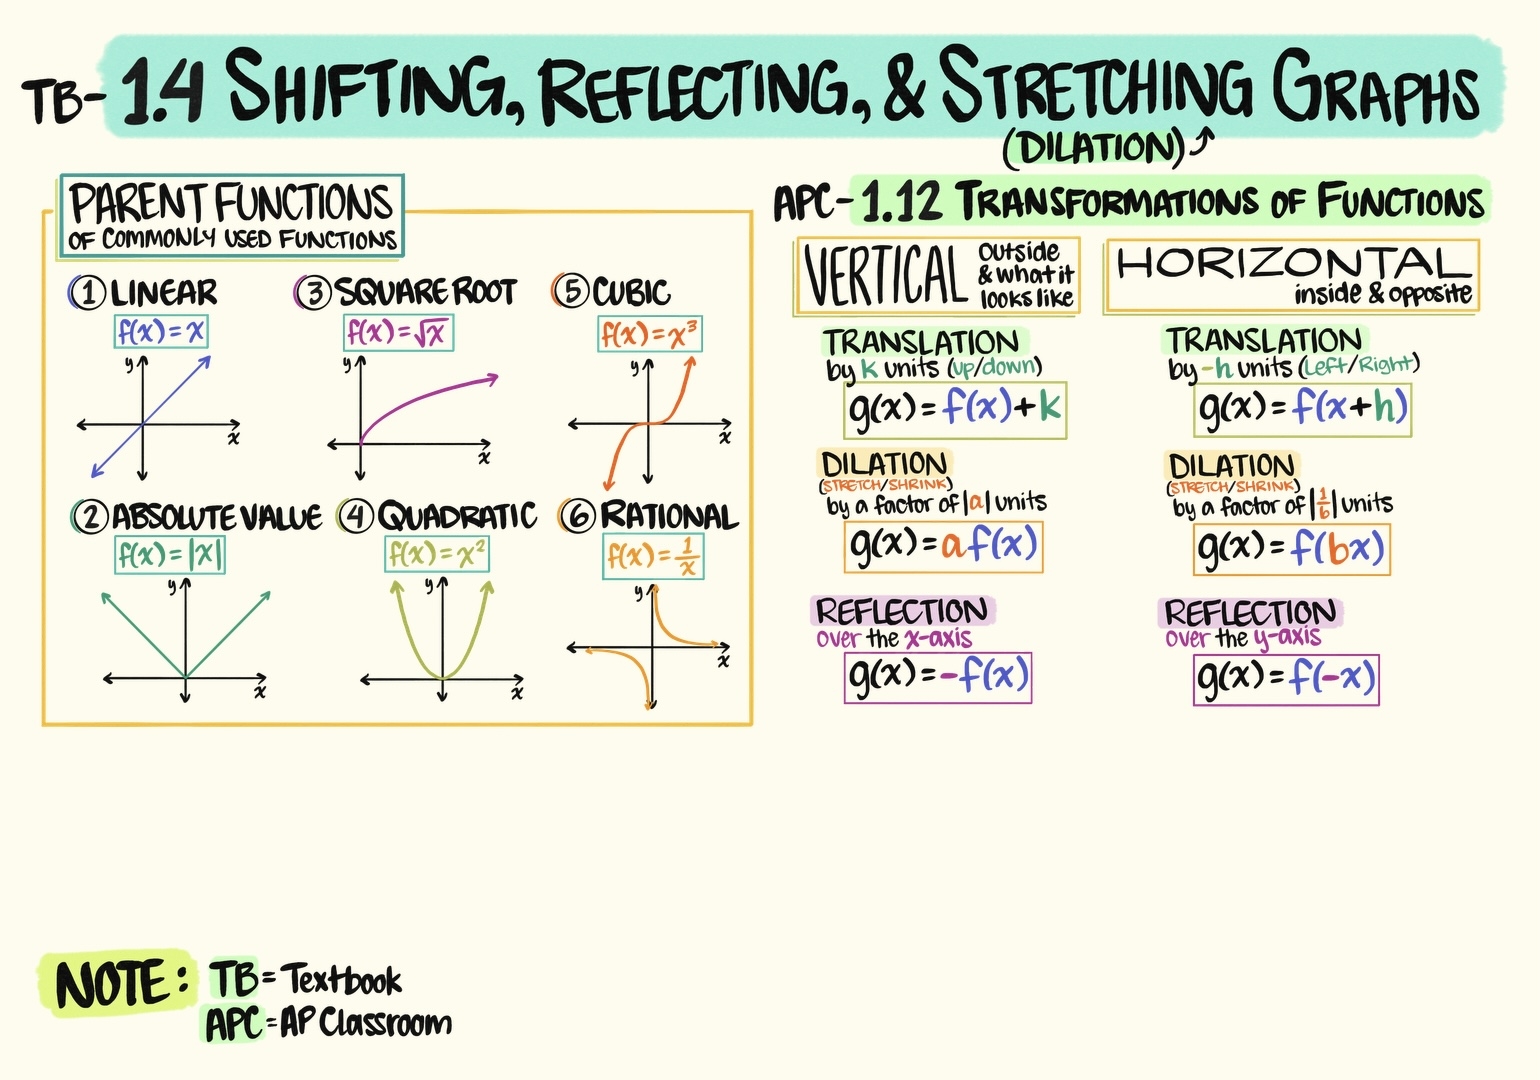 TB- 1.4 SHIFTING, REFLECTING, & STRETCHING GRAPHS
(DILATION)
PARENT FUNCTIONS
OF COMMONLY USED FUNCTIONS
① LINEAR
f(x) = x
y
x
③ SQUARE ROOT
f(x) = √x
y
x
⑤ CUBIC
f(x) = x³
y
x
② ABSOLUTE VALUE
f(x) = |x|
y
x
④ QUADRATIC
f(x) = x²
y
x
⑥ RATIONAL
f(x) = 1/x
y
x
APC- 1.12 TRANSFORMATIONS OF FUNCTIONS
VERTICAL
outside
& what it
looks like
TRANSLATION
by k units (up/down)
g(x) = f(x) + k
DILATION
(STRETCH/SHRINK)
by a factor of |a| units
g(x) = a f(x)
REFLECTION
over the x-axis
g(x) = -f(x)
HORIZONTAL
inside & opposite
TRANSLATION
by -h units (Left/Right)
g(x) = f(x + h)
DILATION
(STRETCH/SHRINK)
by a factor of |1/b| units
g(x) = f(bx)
REFLECTION
over the y-axis
g(x) = f(-x)
NOTE: TB = Textbook
APC = AP Classroom